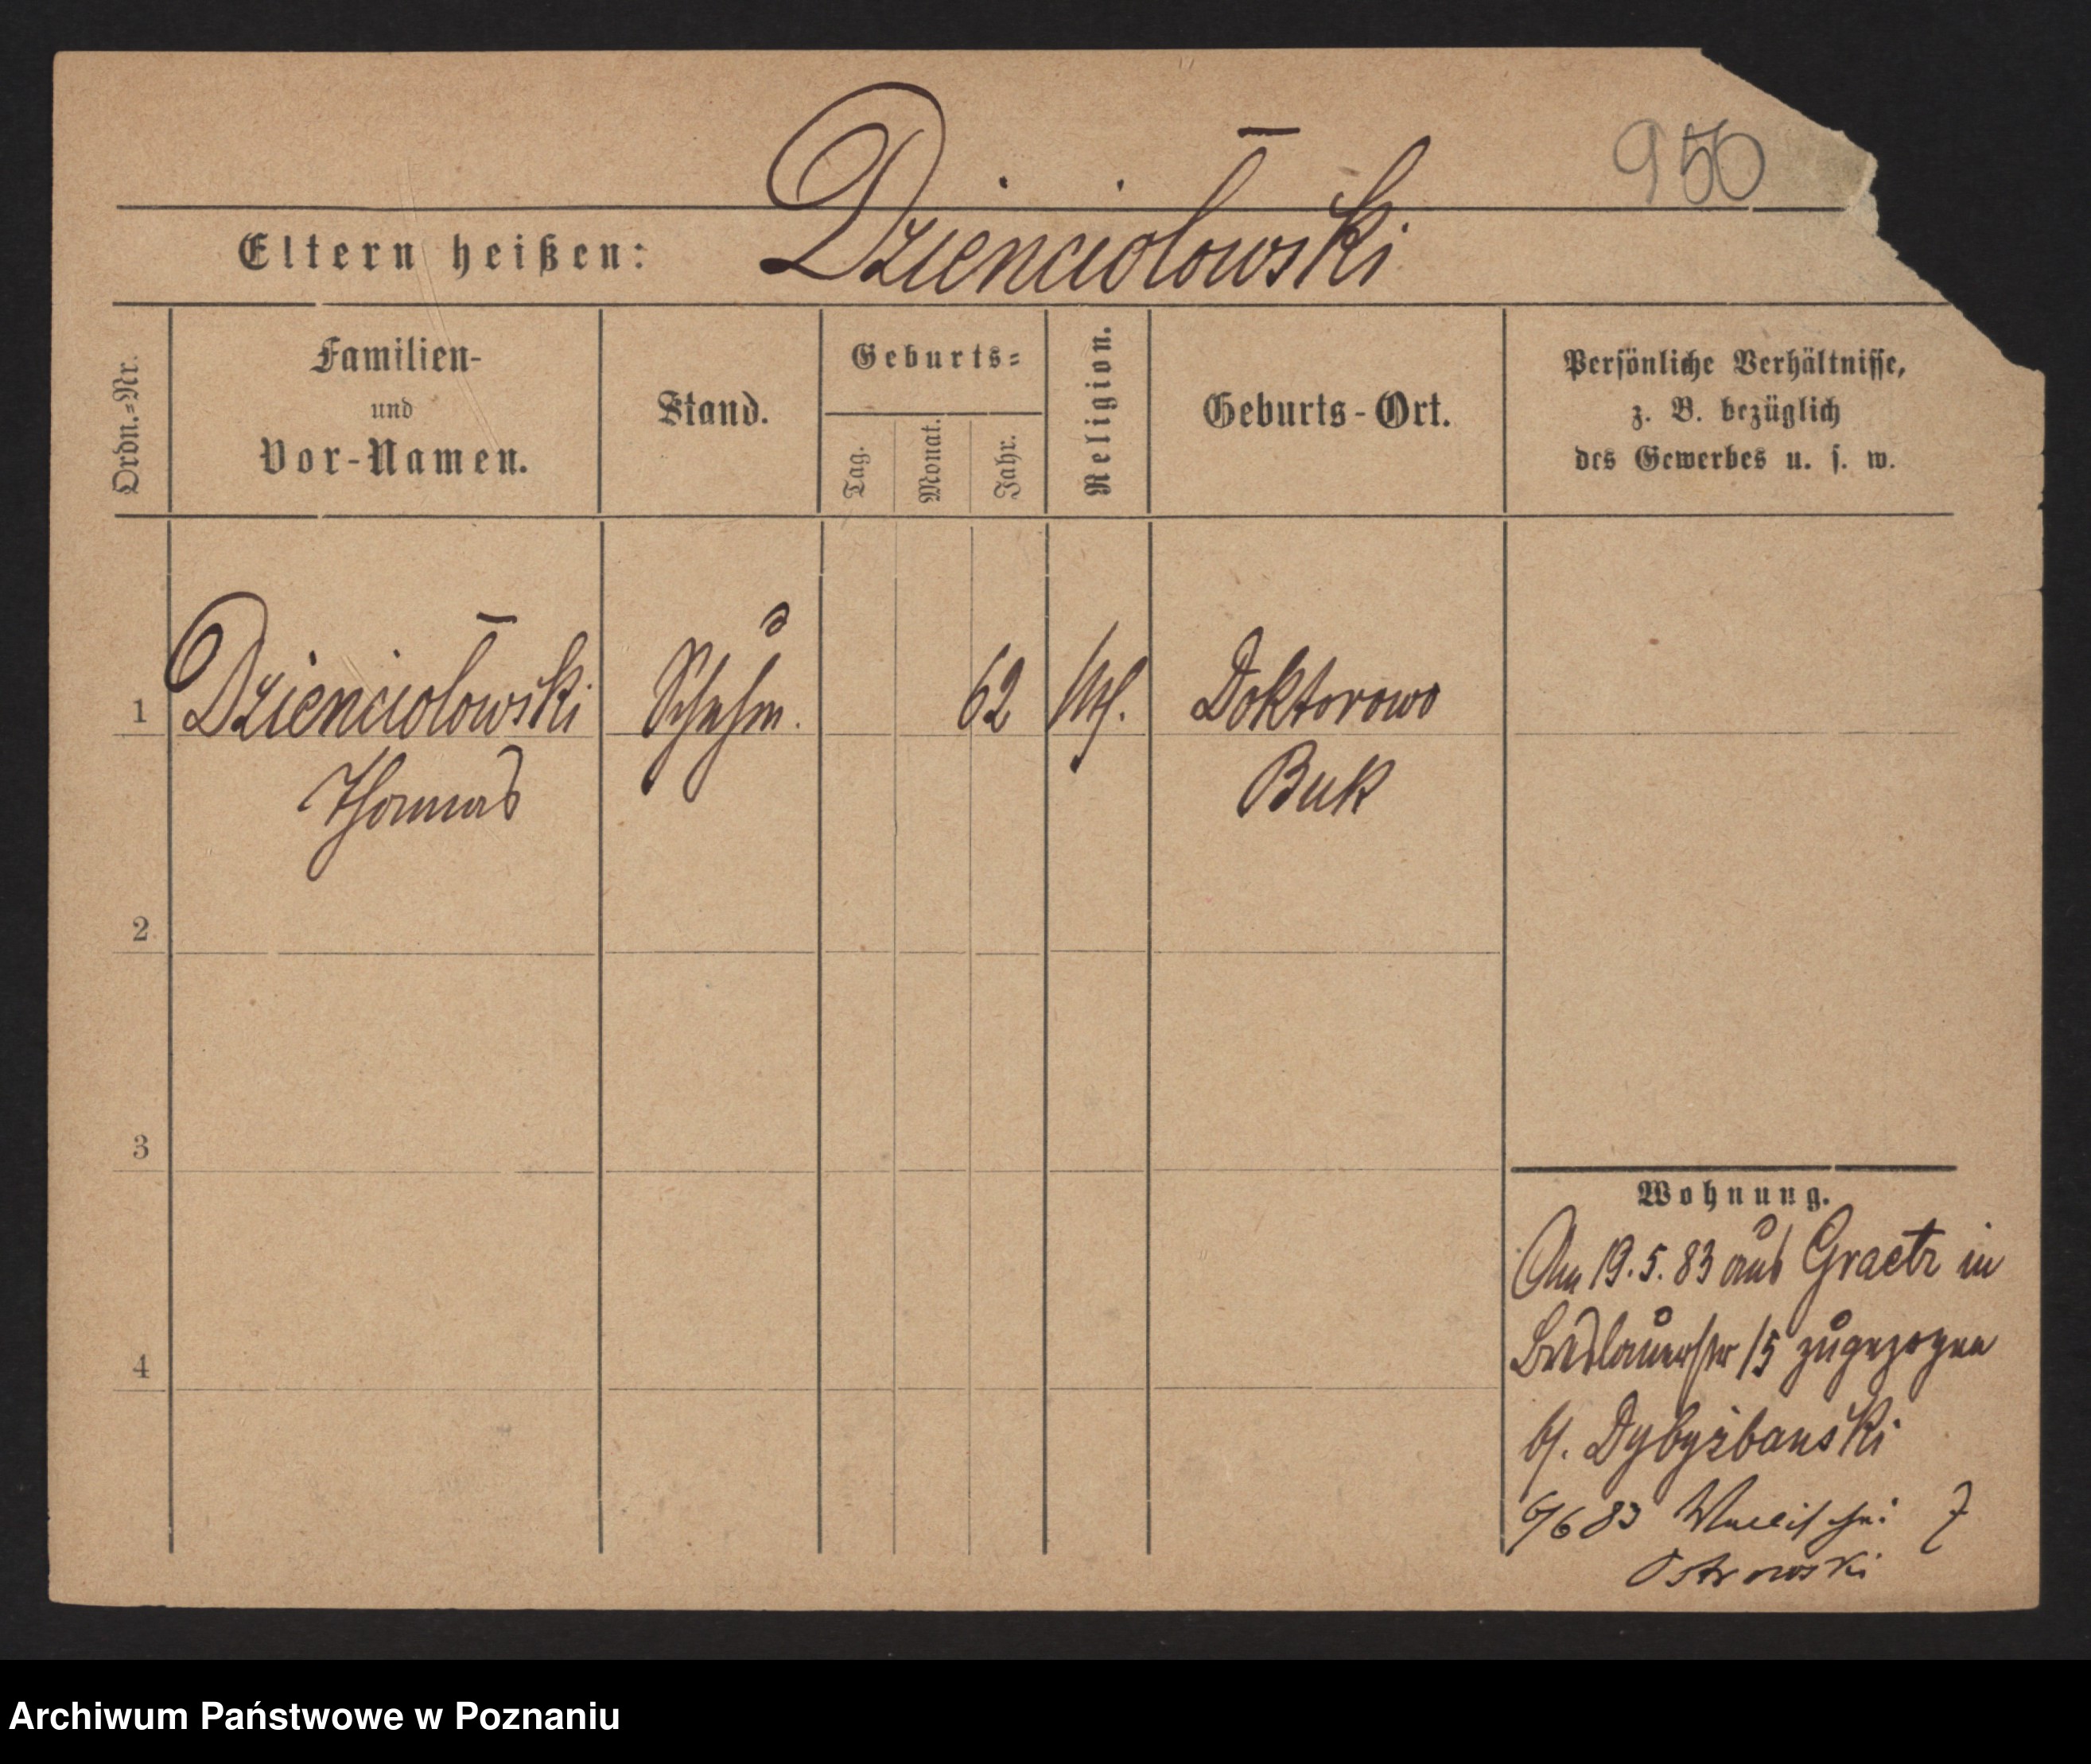 950
Dzienciolowski
Eltern heißen:
Ordn.=Nr.
Familien-
und
Vor-Namen.
Stand.
Geburts=
Tag.
Monat.
Jahr.
Religion.
Geburts-Ort.
Persönliche Verhältnisse,
z. B. bezüglich
des Gewerbes u. s. w.
1
Dzienciolowski
Schuhm.
62
kth.
Doktorowo
Thomas
Buk
2
3
4
Wohnung.
Am 19.5.83 aus Graetz in
Breslauerstr 15 zugezogen
b/. Dybyżbanski
6/6 83 Wallischei 7
Ostrowski
Archiwum Państwowe w Poznaniu